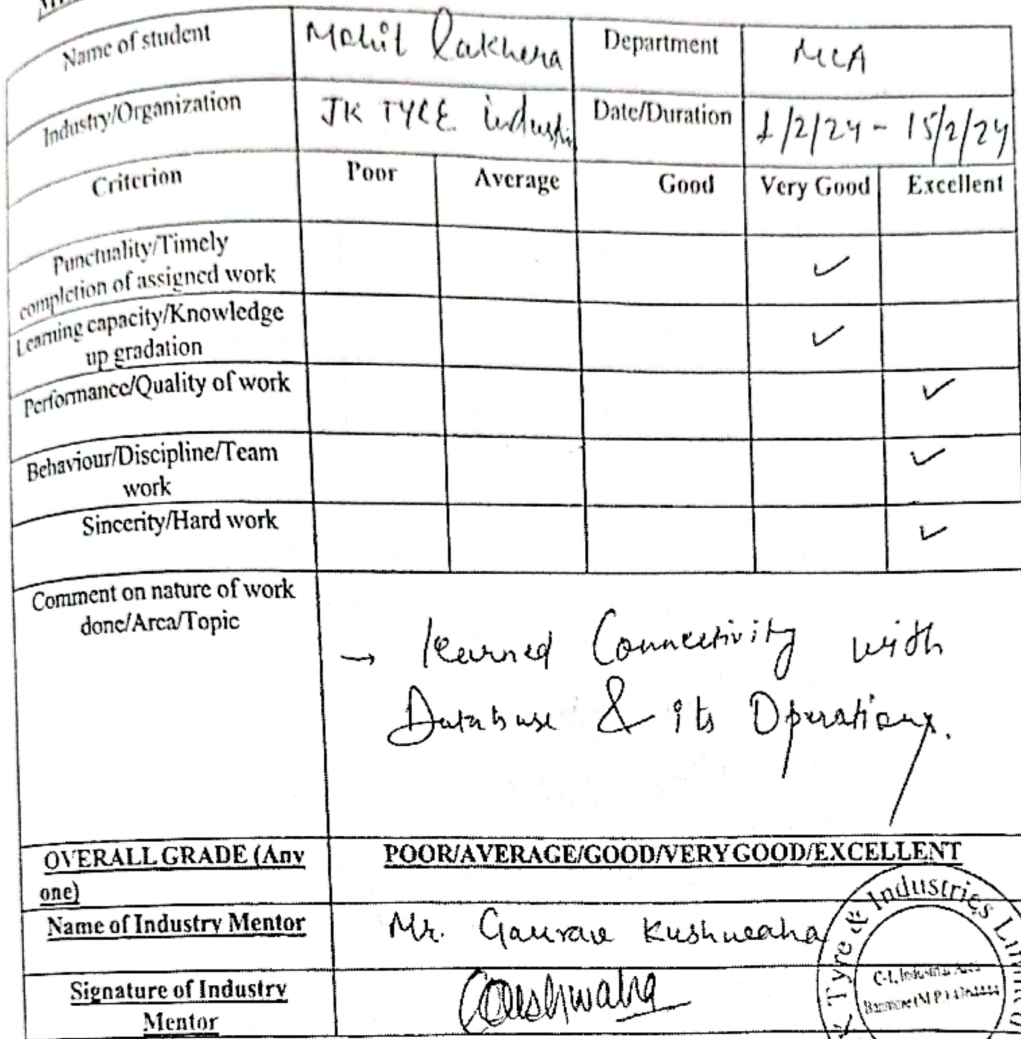 Name of student Mohit Lakhera Department MCA
Industry/Organization JK TYRE Industri Date/Duration 1/2/24 - 15/2/24
Criterion Poor Average Good Very Good Excellent
Punctuality/Timely
completion of assigned work ✓
Learning capacity/Knowledge
up gradation ✓
Performance/Quality of work ✓
Behaviour/Discipline/Team
work ✓
Sincerity/Hard work ✓
Comment on nature of work
done/Area/Topic
→ learned Connectivity with
Database & its Operations.
OVERALL GRADE (Any
one) POOR/AVERAGE/GOOD/VERY GOOD/EXCELLENT
Name of Industry Mentor Mr. Gaurav Kushwaha
Signature of Industry
Mentor
Tyre & Industries Limited
C-1, Industrial Area